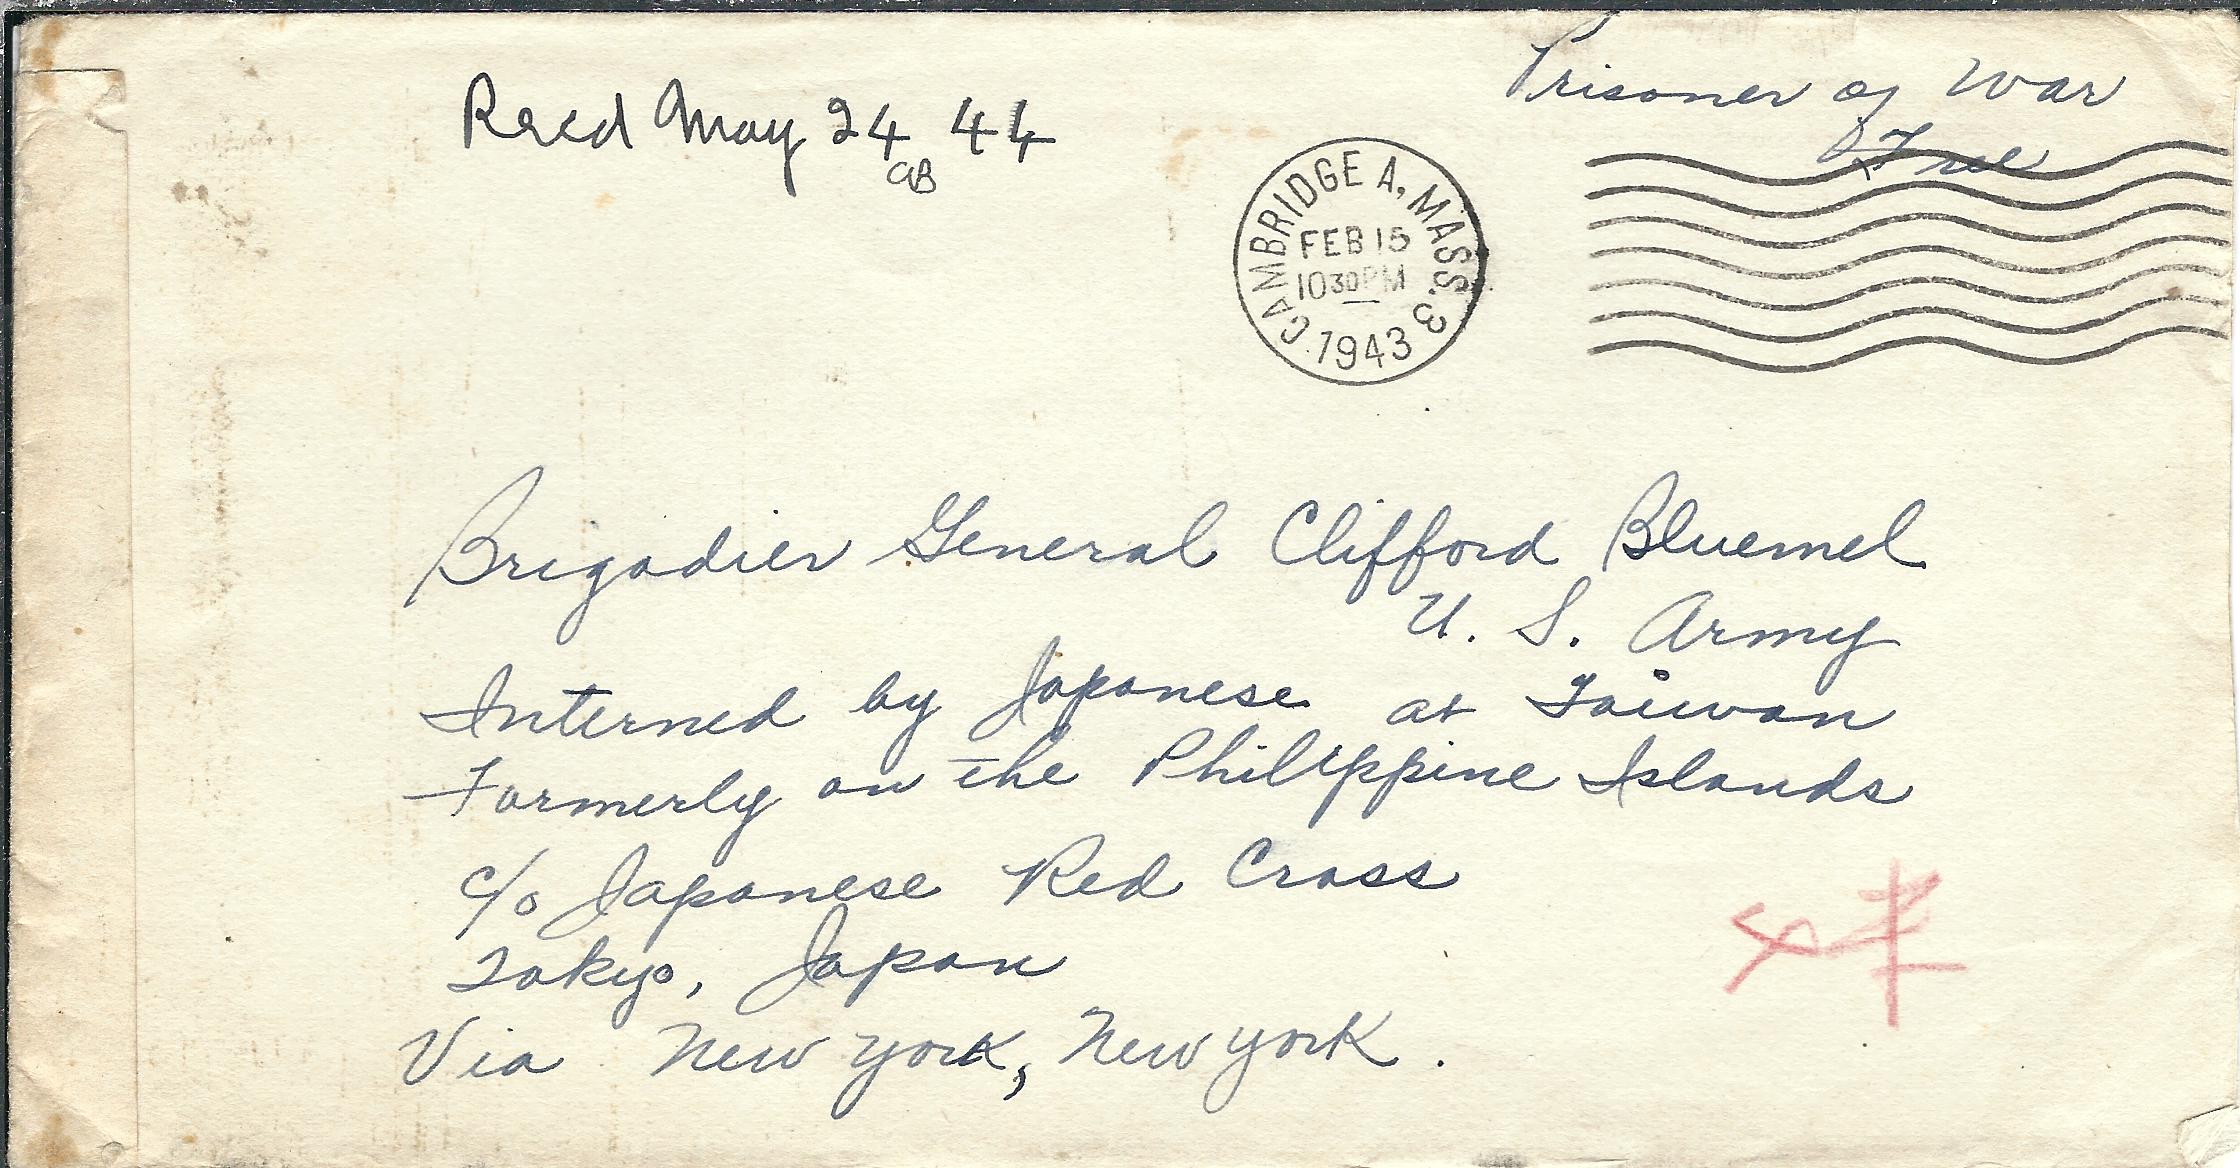 Prisoner of War
Free
Recd May 24 44
CB
CAMBRIDGE A, MASS. 3
FEB 15
1030PM
1943
Brigadier General Clifford Bluemel
U. S. Army
Interned by Japanese at Taiwan
Formerly on the Philippine Islands
c/o Japanese Red Cross
Tokyo, Japan
Via New York, New York.